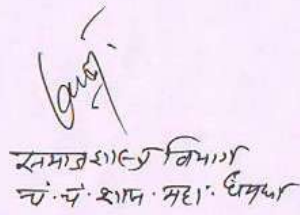 समाजशास्त्र विभाग
चं. चं. शास. महा. धमधा